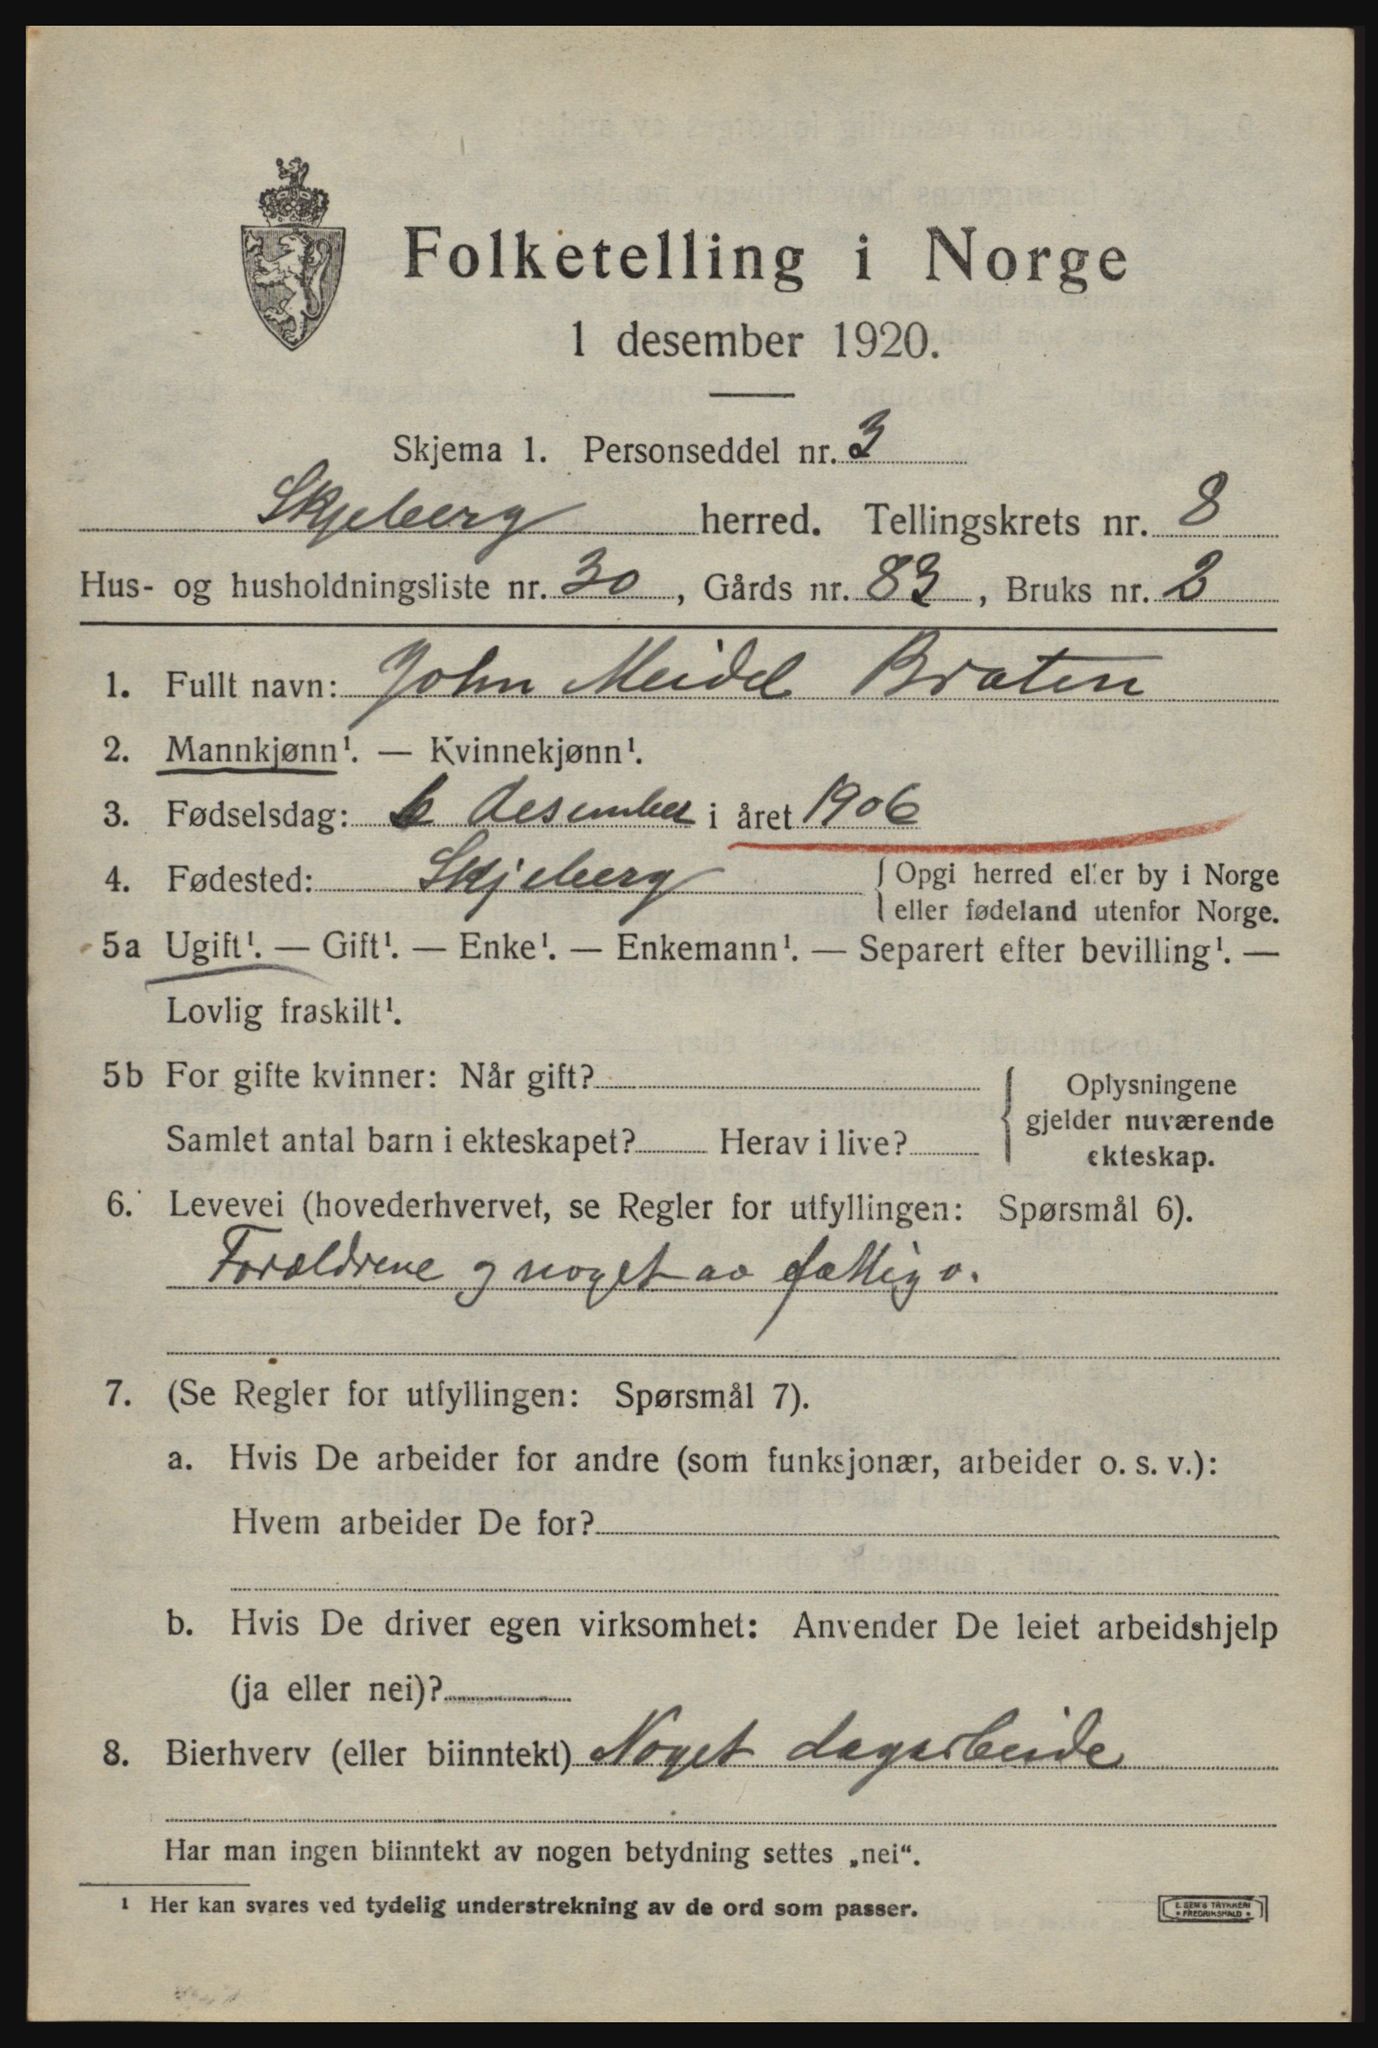 Folketelling i Norge
1 desember 1920.
Skjema 1. Personseddel nr. 3
Skjeberg herred. Tellingskrets nr. 8
Hus- og husholdningsliste nr. 30, Gårds nr. 83, Bruks nr. 2
1. Fullt navn: John Meidel Braten
2. Mannkjønn¹. — Kvinnekjønn¹.
3. Fødselsdag: 6 desember i året 1906
4. Fødested: Skjeberg { Opgi herred eller by i Norge
eller fødeland utenfor Norge.
5a Ugift¹. — Gift¹. — Enke¹. — Enkemann¹. — Separert efter bevilling¹. —
Lovlig fraskilt¹.
5b For gifte kvinner: Når gift?
Samlet antal barn i ekteskapet? Herav i live?
{ Oplysningene
gjelder nuværende
ekteskap.
6. Levevei (hovederhvervet, se Regler for utfyllingen: Spørsmål 6).
Forældrene og noget av fattigv.
7. (Se Regler for utfyllingen: Spørsmål 7).
a. Hvis De arbeider for andre (som funksjonær, arbeider o. s. v.):
Hvem arbeider De for?
b. Hvis De driver egen virksomhet: Anvender De leiet arbeidshjelp
(ja eller nei)?
8. Bierhverv (eller biinntekt) Noget dagarbeide
Har man ingen biinntekt av nogen betydning settes „nei“.
¹ Her kan svares ved tydelig understrekning av de ord som passer.
E. SEM'S TRYKKERI
• FREDRIKSHALD •